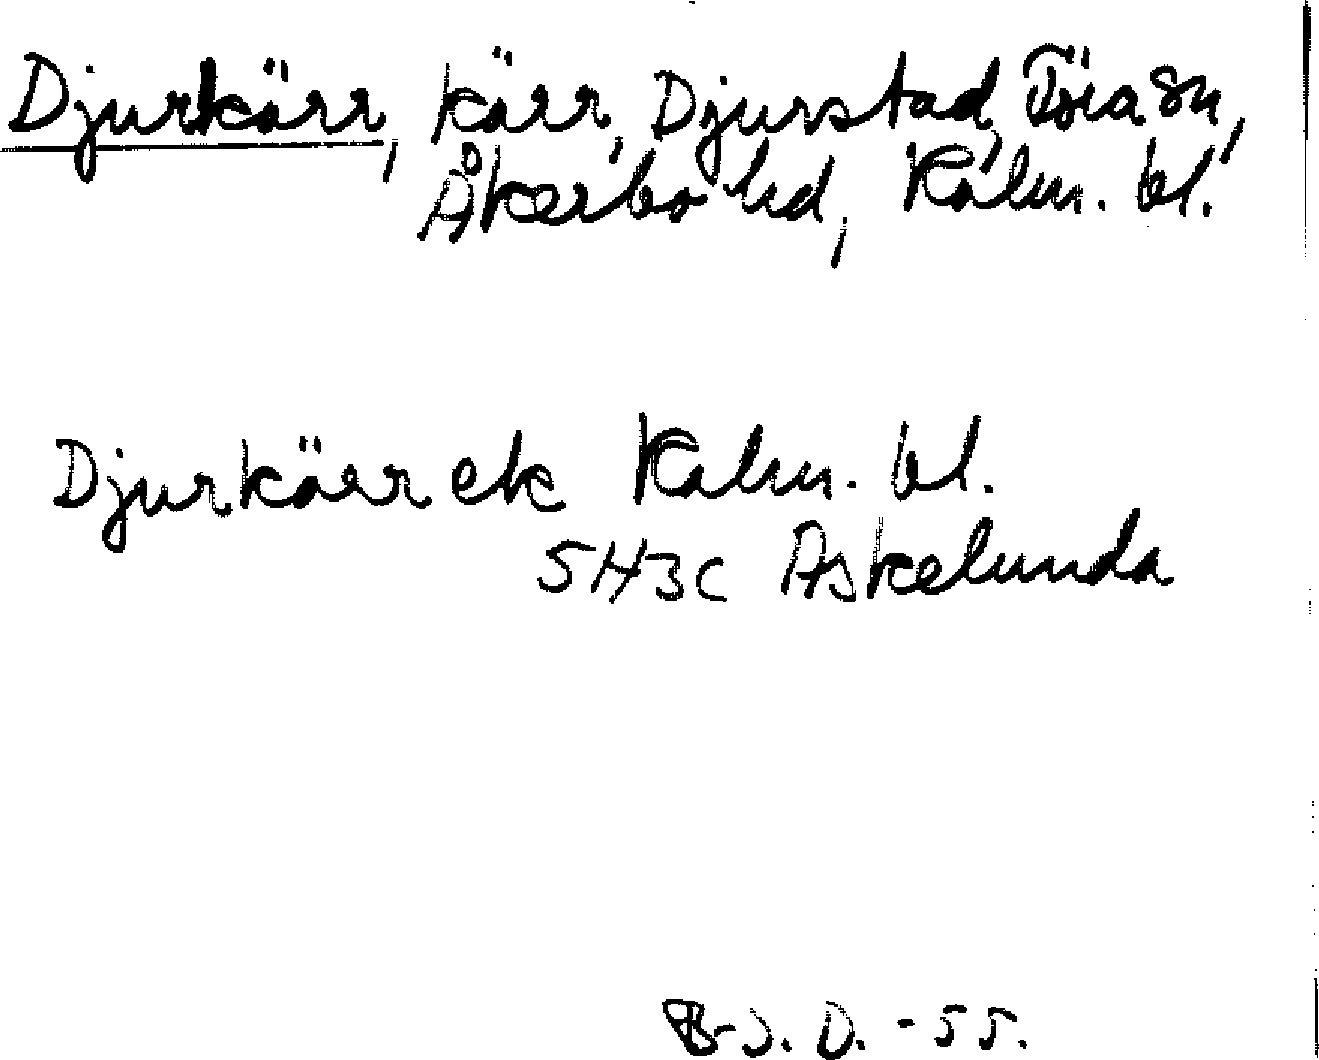 Djurkärr, kärr, Djurstad, Föra sn,
Åkerbo hd, Kalm. bl.
Djurkärr ek Kalm. bl.
5H3c Askelunda
B-J. D. -55.